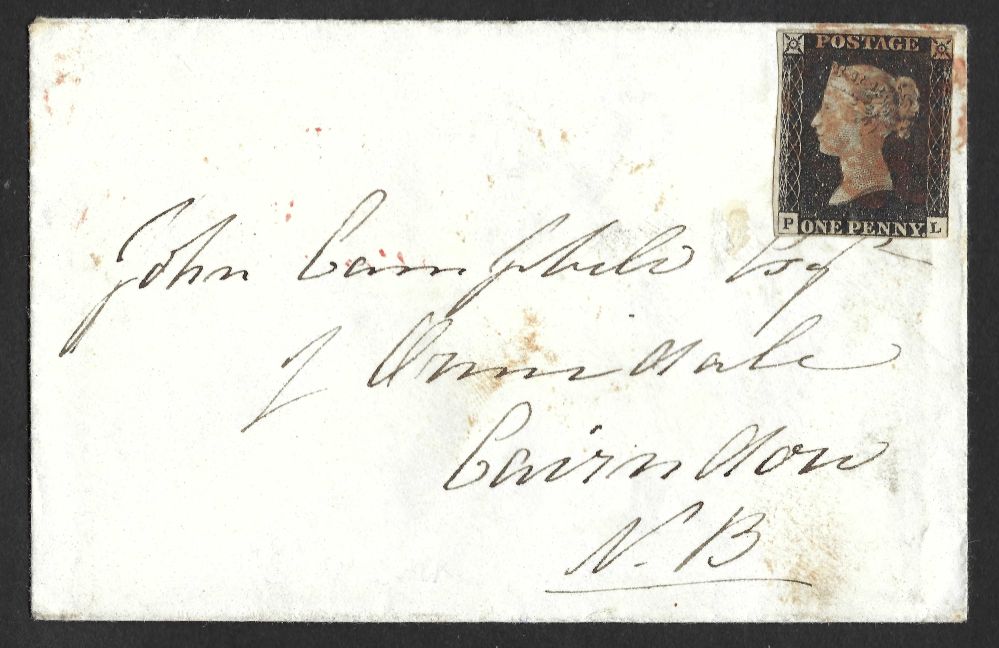 POSTAGE
P ONE PENNY. L
John Campbell Esqr
of Ormidale
Cairndow
N.B